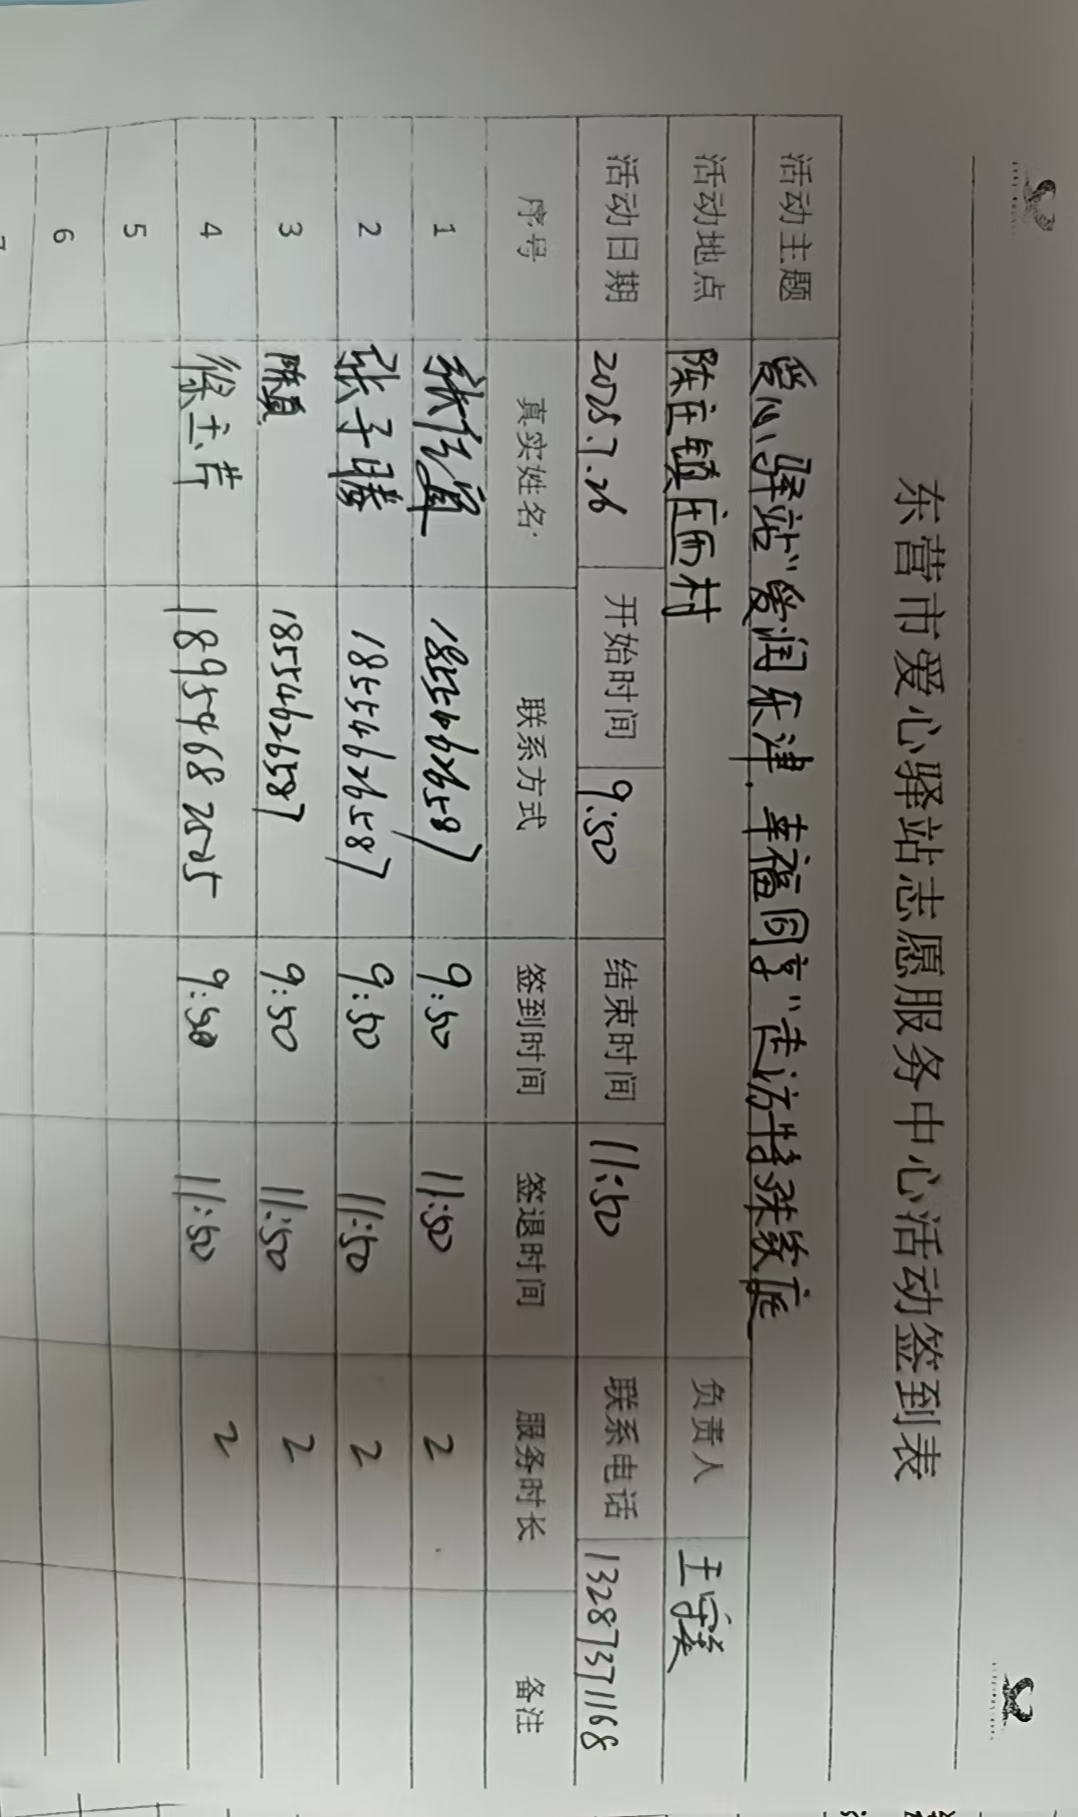 东营市爱心驿站志愿服务中心活动签到表
活动主题 爱心驿站"爱润东津.幸福同享"走访特殊家庭
活动地点 陈庄镇庄西村 负责人 王
活动日期 2025.7.26 开始时间 9:50 结束时间 11:50 联系电话 13287371168
序号 真实姓名 联系方式 签到时间 签退时间 服务时长 备注
1 张 18554626587 9:50 11:50 2
2 张子腾 18554626587 9:50 11:50 2
3 陈 18554626587 9:50 11:50 2
4 徐主芹 18954682525 9:50 11:50 2
5
6
7